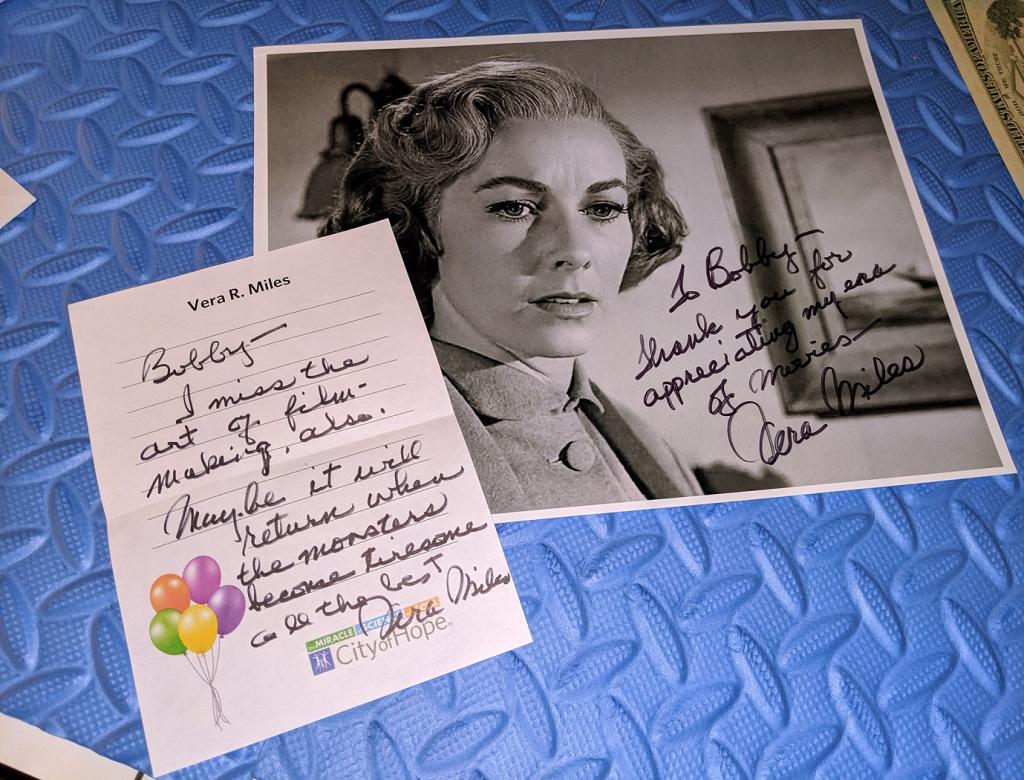 Vera R. Miles
Bobby-
I miss the
art of film-
making, also.
Maybe it will
return when
the monsters
become tiresome
all the best
Vera Miles
The MIRACLE of SCIENCE with SOUL
City of Hope®
To Bobby-
Thank you for
appreciating my era
of movies-
Vera Miles